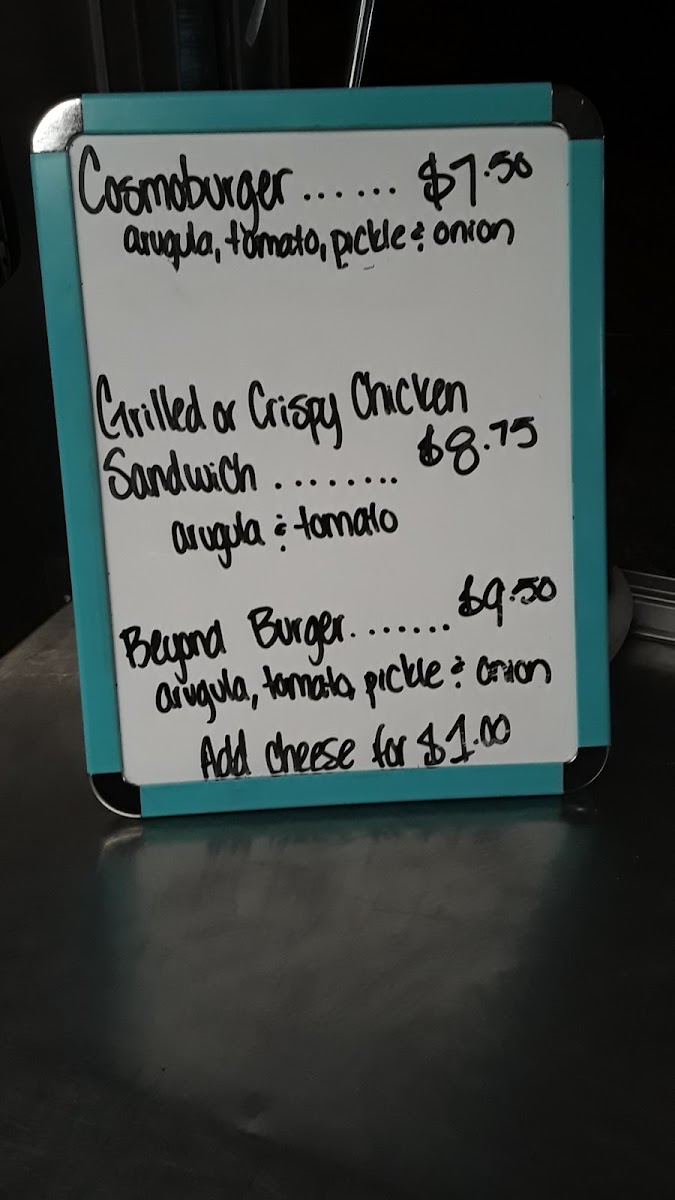 Cosmoburger ...... $7.50
arugula, tomato, pickle & onion
Grilled or Crispy Chicken
Sandwich ........ $8.75
arugula & tomato
Beyond Burger ....... $9.50
arugula, tomato, pickle & onion
Add cheese for $1.00